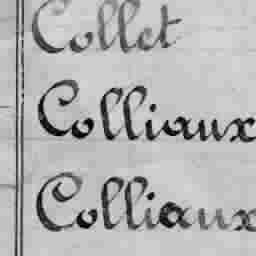 Collet
Colliaux
Colliaux